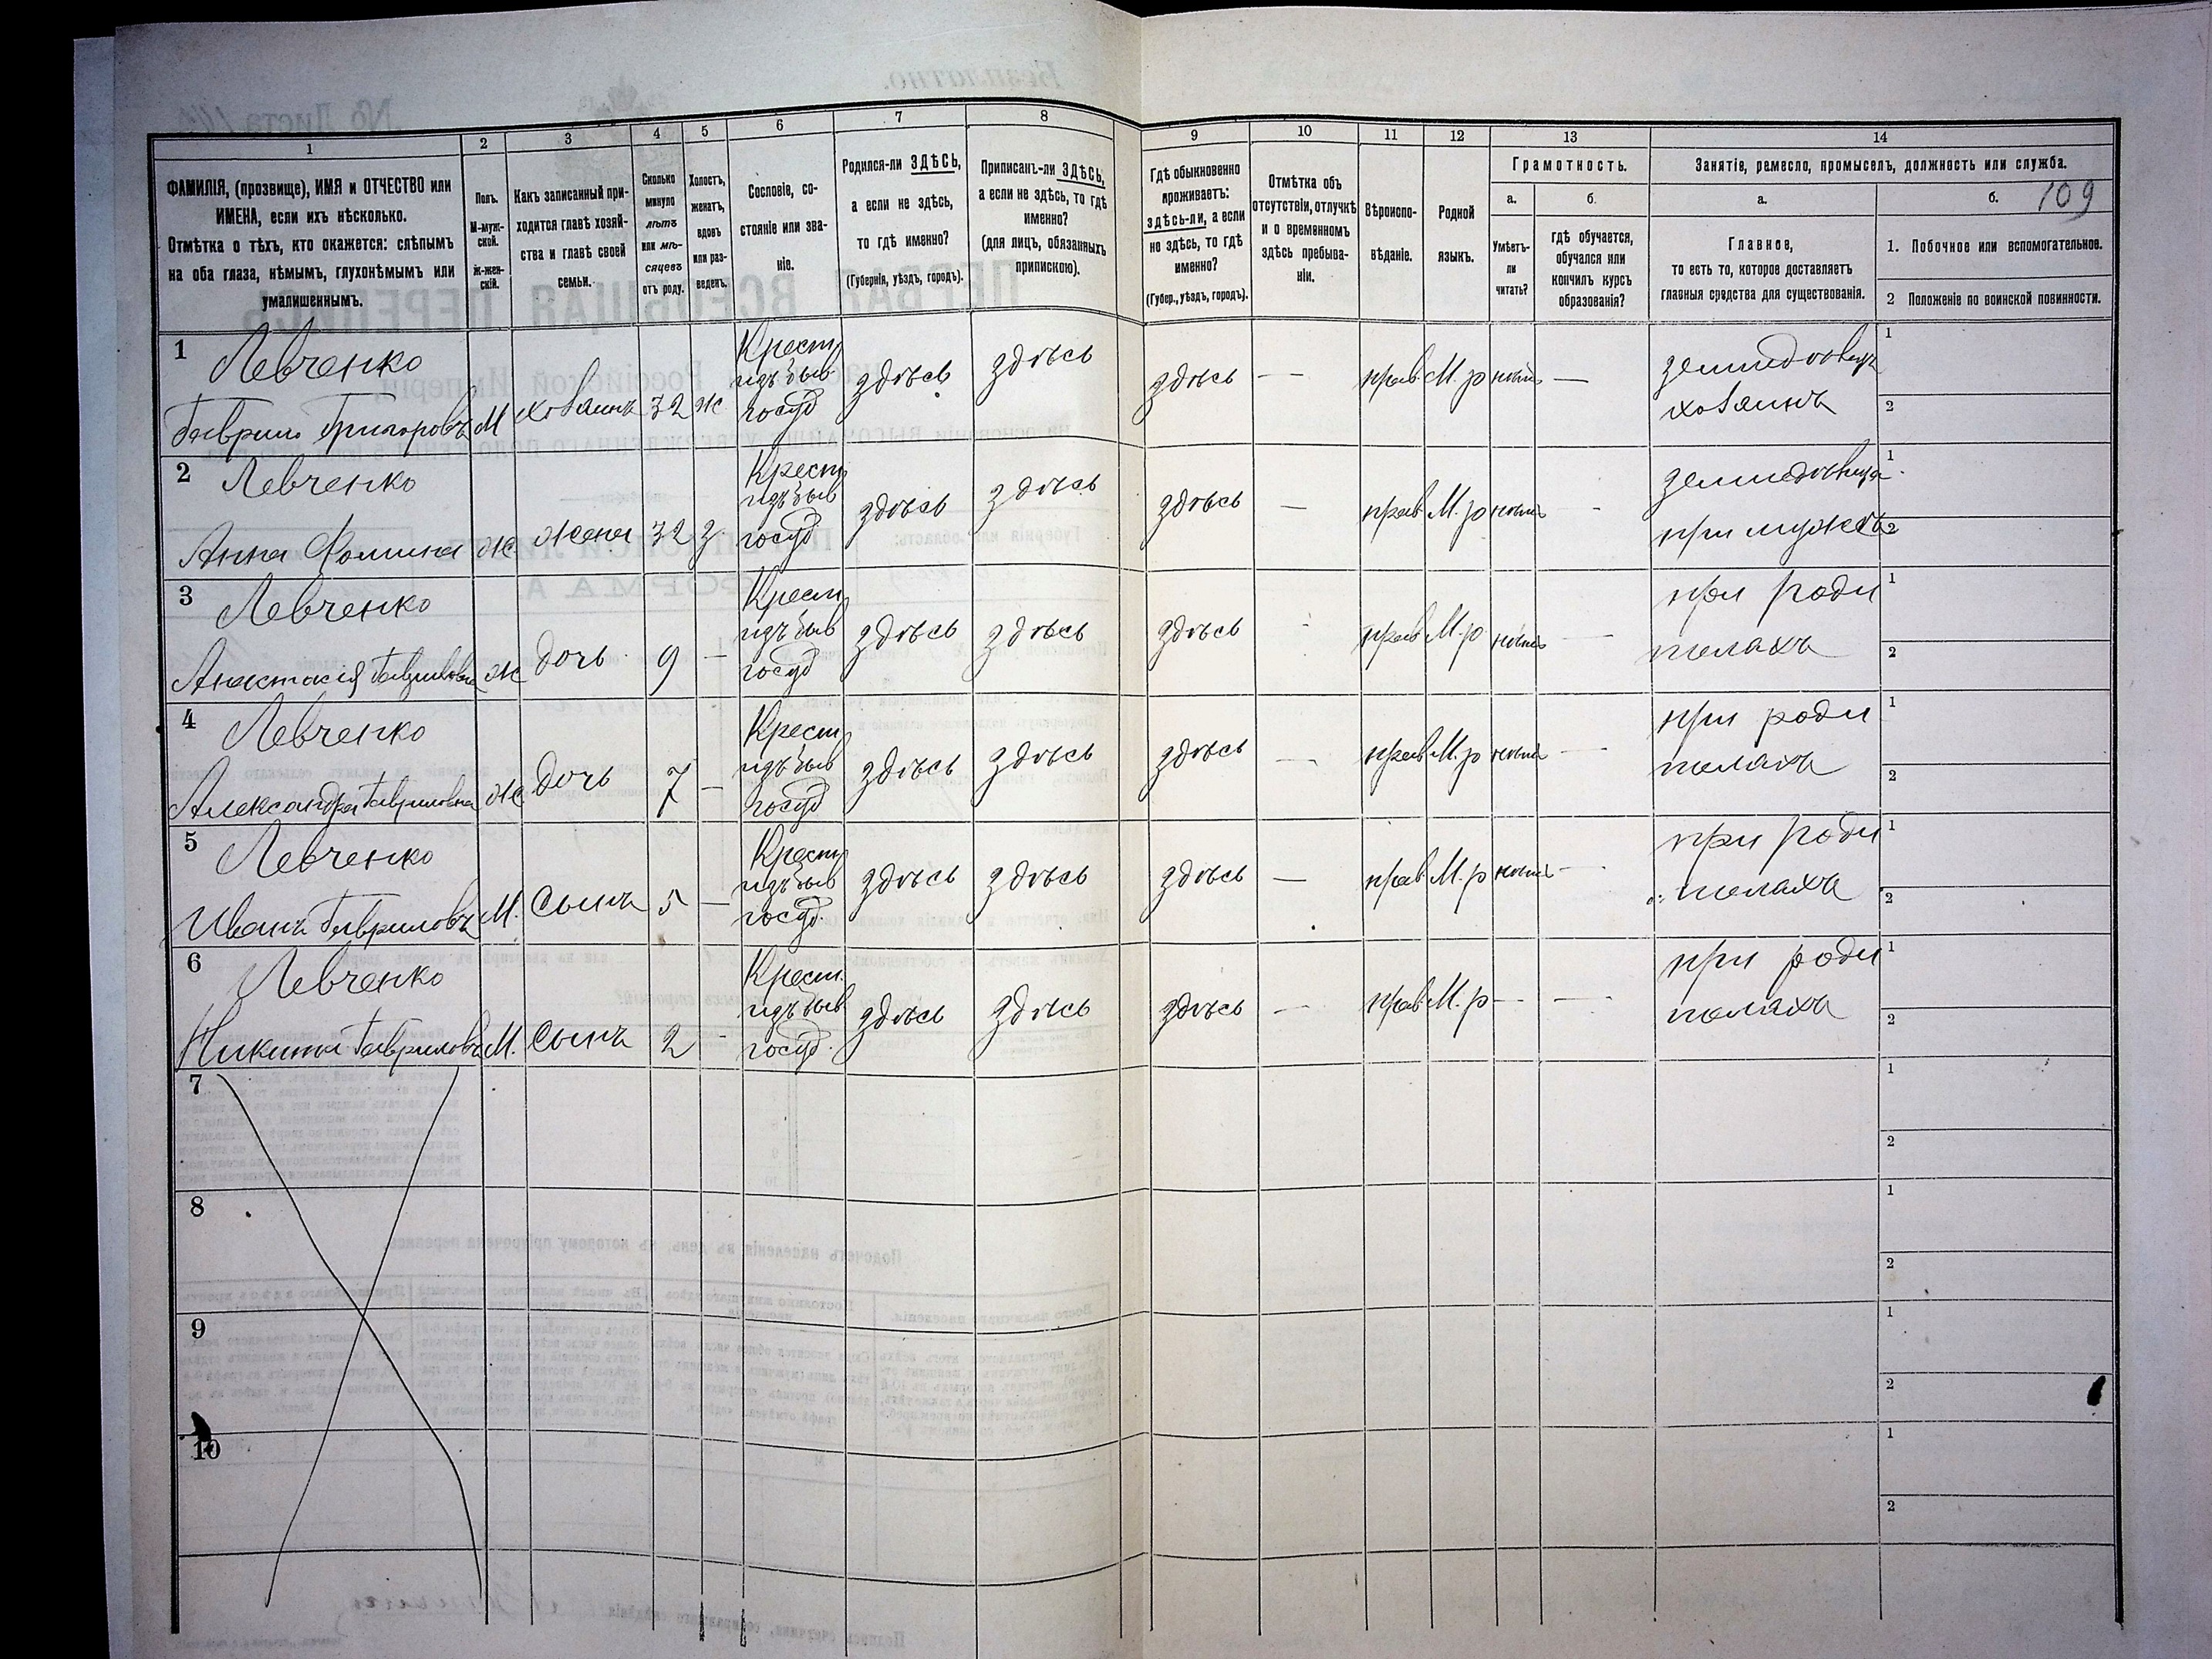 1 2 3 4 5 6 7 8 9 10 11 12 13 14
ФАМИЛІЯ, (прозвище), ИМЯ и ОТЧЕСТВО или
ИМЕНА, если ихъ нѣсколько.
Отмѣтка о тѣхъ, кто окажется: слѣпымъ
на оба глаза, нѣмымъ, глухонѣмымъ или
умалишеннымъ.
Полъ.
М-муж-
ской.
Ж-жен-
скій.
Какъ записанный при-
ходится главѣ хозяй-
ства и главѣ своей
семьи.
Сколько
минуло
лѣтъ
или мѣ-
сяцевъ
отъ роду.
Холостъ,
женатъ,
вдовъ
или раз-
веденъ.
Сословіе, со-
стояніе или зва-
ніе.
Родился-ли ЗДѢСЬ,
а если не здѣсь,
то гдѣ именно?
(Губернія, уѣздъ, городъ).
Приписанъ-ли ЗДѢСЬ,
а если не здѣсь, то гдѣ
именно?
(для лицъ, обязанныхъ
припискою).
Гдѣ обыкновенно
проживаетъ:
здѣсь-ли, а если
не здѣсь, то гдѣ
именно?
(Губер., уѣздъ, городъ).
Отмѣтка объ
отсутствіи, отлучкѣ
и о временномъ
здѣсь пребыва-
ніи.
Вѣроиспо-
вѣданіе.
Родной
языкъ.
Грамотность.
а.
Умѣетъ-
ли
читать?
б.
гдѣ обучается,
обучался или
кончилъ курсъ
образованія?
Занятіе, ремесло, промыселъ, должность или служба.
а.
Главное,
то есть то, которое доставляетъ
главныя средства для существованія.
б. 109
1. Побочное или вспомогательное.
2 Положеніе по воинской повинности.
1 Левченко Крест 1
изъ быв здѣсь здѣсь здѣсь — прав М. р нѣтъ — земледѣлецъ
Гаврило Григоровъ М хозяинъ 32 ж госуд хозяинъ 2
2 Левченко Крест 1
изъ быв здѣсь здѣсь здѣсь — прав М. р нѣтъ - земледѣлица
Анна Фомина ж жена 32 з госуд при мужѣ 2
3 Левченко Крест при роди 1
изъ быв здѣсь здѣсь здѣсь - прав М. р нѣтъ —
Анастасія Гавриловна ж дочь 9 — госуд телахъ 2
4 Левченко Крест при роди 1
изъ быв здѣсь здѣсь здѣсь — прав М. р нѣтъ —
Александра Гавриловна ж дочь 7 — госуд телахъ 2
5 Левченко Крест при роди 1
изъ быв здѣсь здѣсь здѣсь — прав М. р нѣтъ —
Иванъ Гавриловъ М. сынъ 5 — госуд. телахъ 2
6 Левченко Крест. при роди 1
изъ быв здѣсь здѣсь здѣсь — прав М. р — —
Никита Гавриловъ М. сынъ 2 - госуд. телахъ 2
7 1
2
8 1
2
9 1
2
10 1
2